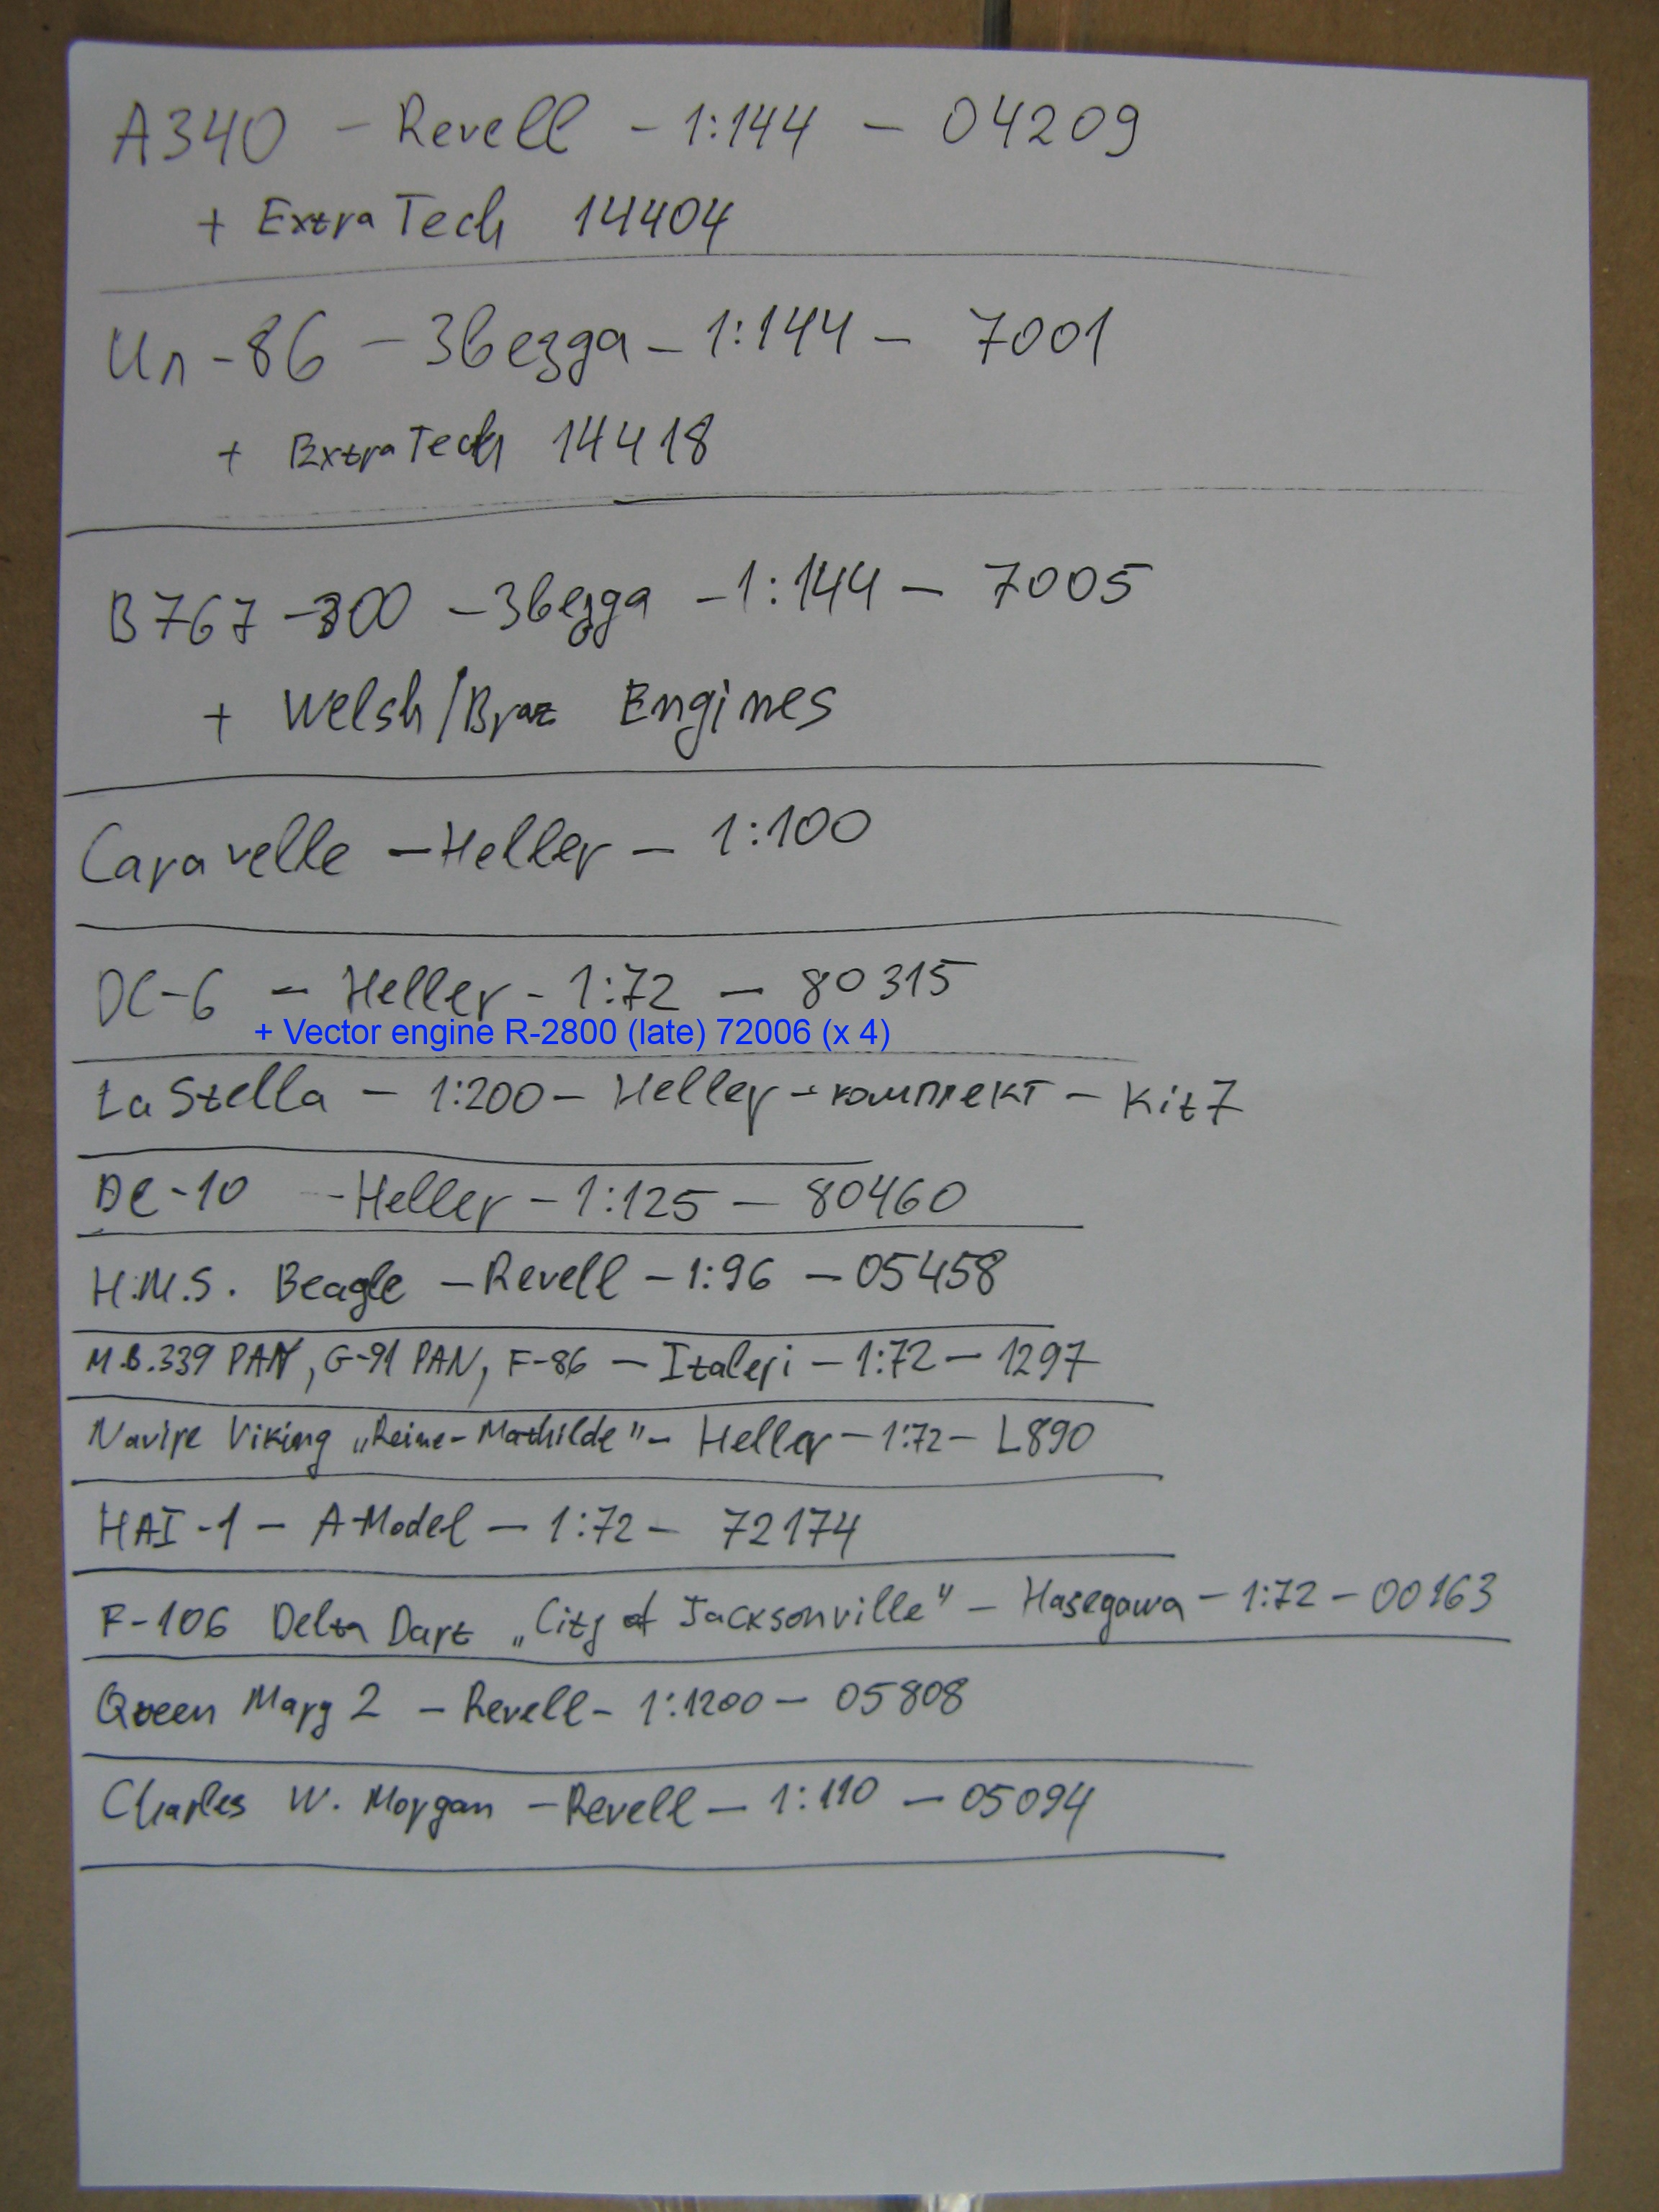 A340 - Revell - 1:144 - 04209
+ ExtraTech 14404
Ил-86 - Звезда - 1:144 - 7001
+ ExtraTech 14418
B767-300 - Звезда - 1:144 - 7005
+ Welsh/Braz Engines
Caravelle - Heller - 1:100
DC-6 - Heller - 1:72 - 80315
+ Vector engine R-2800 (late) 72006 (x 4)
La Stella - 1:200 - Heller - комплект - Kit7
DC-10 - Heller - 1:125 - 80460
H.M.S. Beagle - Revell - 1:96 - 05458
M.B.339 PAN, G-91 PAN, F-86 - Italeri - 1:72 - 1297
Navire Viking „Reine-Mathilde" - Heller - 1:72 - L890
HAI-1 - A-Model - 1:72 - 72174
F-106 Delta Dart „City of Jacksonville" - Hasegawa - 1:72 - 00163
Queen Mary 2 - Revell - 1:1200 - 05808
Charles W. Morgan - Revell - 1:110 - 05094